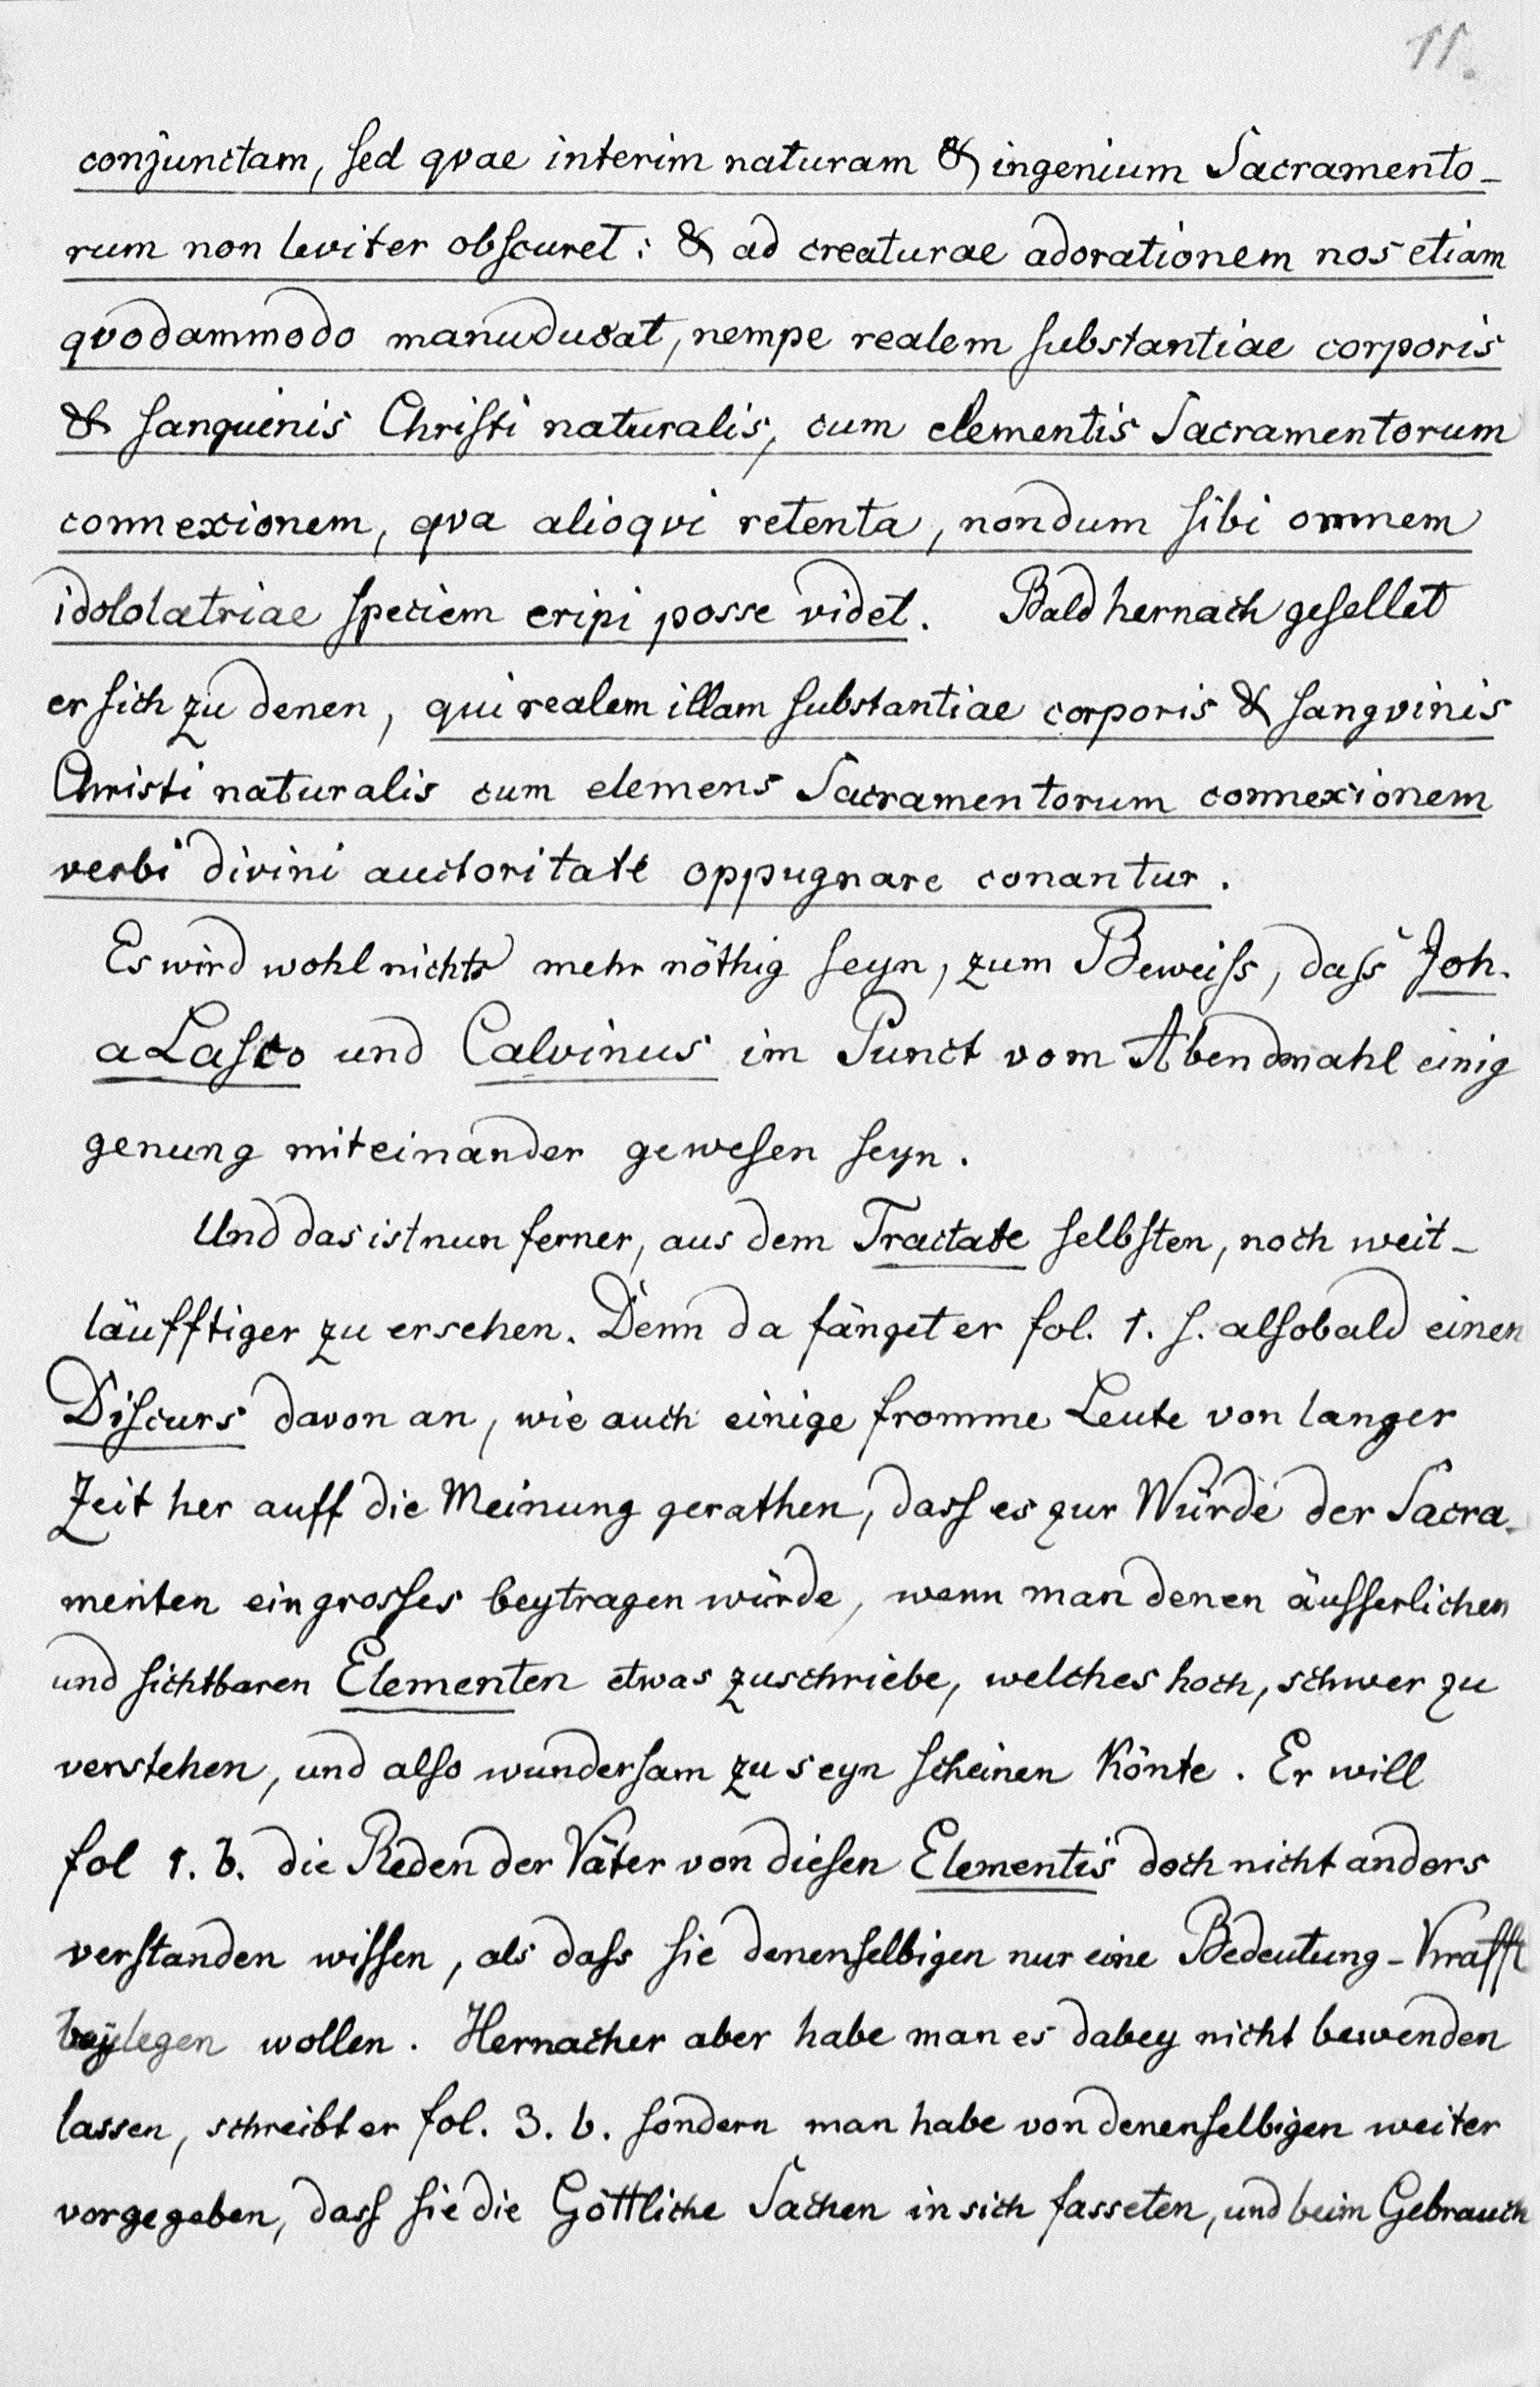 11.
conjunctam, sed qvae interim naturam & ingenium Sacramento-
rum non leviter obscuret: & ad creaturae adorationem nos etiam
qvodammodo manuducat, nempe realem substantiae corporis
& sanguinis Christi naturalis, cum elementis Sacramentorum
connexionem, qva alioqvi retenta, nondum sibi omnem
idololatriae speciem eripi posse videt. Bald hernach gesellet
er sich zu denen, qui realem illam substantiae corporis & sangvinis
Christi naturalis cum elemens Sacramentorum connexionem
verbi divini auctoritate oppugnare conantur.
Es wird wohl nichts mehr nöthig seyn, zum Beweiss, dass Joh.
a Lasco und Calvinus im Punct vom Abendmahl einig
genung miteinander gewesen seyn.
Und das ist nun ferner, aus dem Tractate selbsten, noch weit-
läufftiger zu ersehen. Denn da fänget er fol. 1. s. alsobald einen
Discurs davon an, wie auch einige fromme Leute von langer
Zeit her auff die Meinung gerathen, dass es zur Würde der Sacra-
menten ein grosses beytragen würde, wenn man denen äusserlichen
und sichtbaren Elementen etwas zuschriebe, welches hoch, schwer zu
verstehen, und also wundersam zu seyn scheinen könte. Er will
fol 1. b. die Reden der Väter von diesen Elementis doch nicht anders
verstanden wissen, als dass sie denenselbigen nur eine Bedeutung-Krafft
beylegen wollen. Hernacher aber habe man es dabey nicht bewenden
lassen, schreibt er fol. 3. b. sondern man habe von denenselbigen weiter
vorgegeben, dass sie die Göttliche Sachen in sich fasseten, und beim Gebrauch